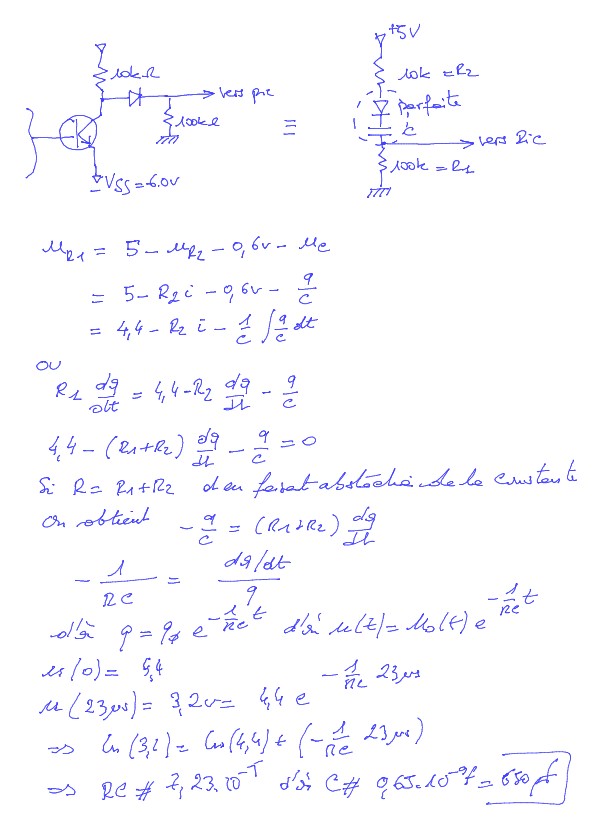 +5V
10kΩ
10k = R2
vers pic
parfaite
100kΩ
≡
C
vers Pic
VSS = -6.0V
100k = R1
uR1 = 5 - uR2 - 0,6v - uc
= 5 - R2 i - 0,6v - q/c
= 4,4 - R2 i - 1/c ∫ q/c dt
ou
R1 dq/dt = 4,4 - R2 dq/dt - q/c
4,4 - (R1+R2) dq/dt - q/c = 0
Si R = R1+R2 et en faisant abstraction de la constante
on obtient - q/c = (R1+R2) dq/dt
- 1/RC = dq/dt / q
d'où q = q0 e^(-1/RC t) d'où u(t) = u0(t) e^(-1/RC t)
u(0) = 4,4
u(23µs) = 3,2v = 4,4 e^(-1/RC 23µs)
=> ln(3,2) = ln(4,4) + (-1/RC 23µs)
=> RC # 7,23.10^-5 d'où C # 0,65.10^-9f = 650pf